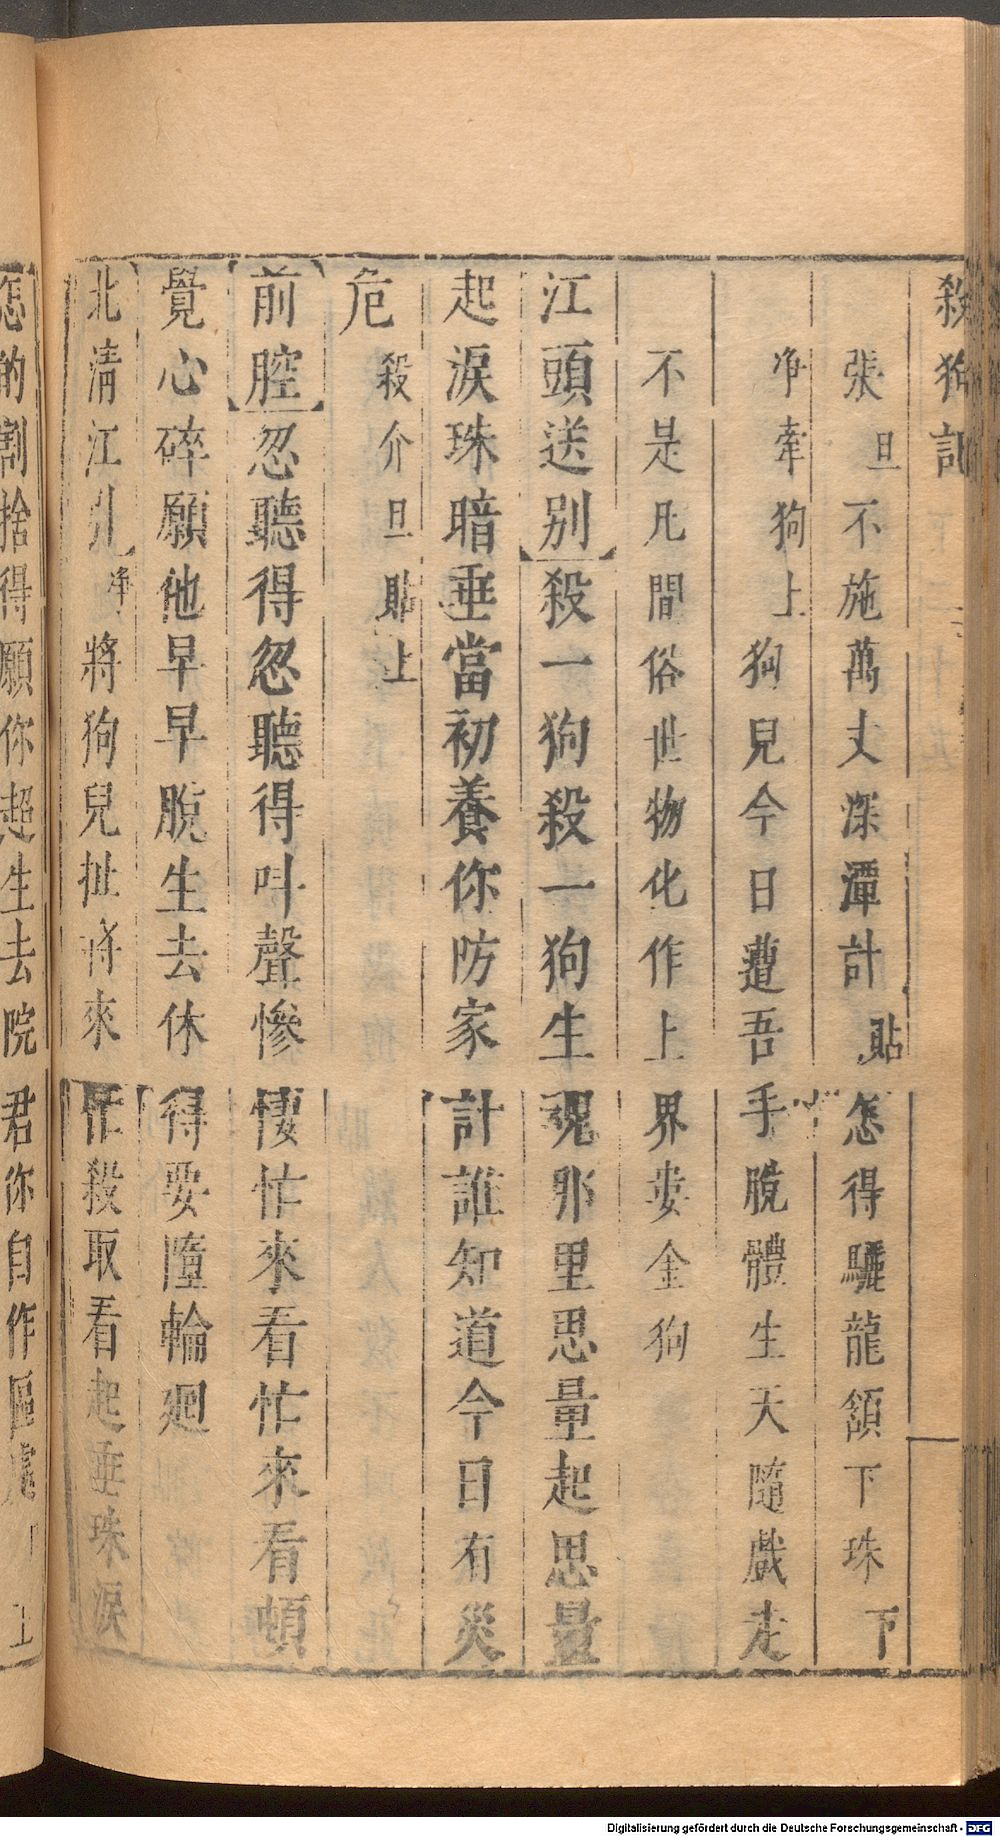 殺狗記
張旦不施萬丈深潭計貼怎得驪龍頷下珠下
净牽狗上狗兒今日遭吾手脫體生天隨戲走
不是凡間俗世物化作上界婁金狗
江頭送别殺一狗殺一狗生魂那里思量起思量
起淚珠暗垂當初養你防家計誰知道今日有災
危殺介旦貼上
前腔忽聽得忽聽得叫聲慘悽忙來看忙來看頓
覺心碎願他早早脫生去休得要墮輪廻
北清江引净將狗兒扯將來忙殺取看起垂珠淚
怎的割捨得願你超生去院君你自作區處
Digitalisierung gefördert durch die Deutsche Forschungsgemeinschaft - DFG